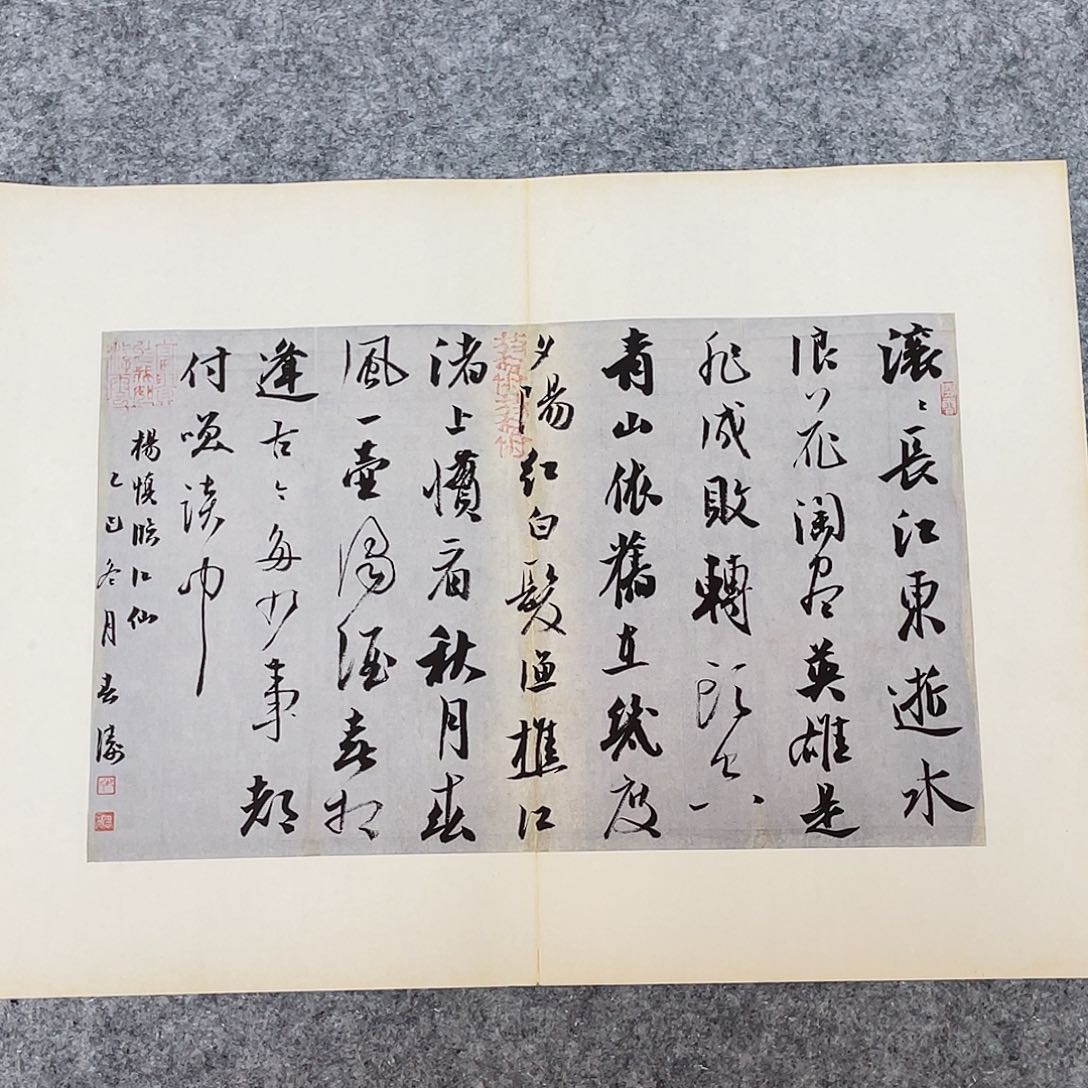 滚〻長江東逝水
浪花淘盡英雄是
非成敗轉頭空
青山依舊在幾度
夕陽紅白髮漁樵江
渚上慣看秋月春
風一壺濁酒喜相
逢古今多少事都
付笑談中
楊慎臨江仙
乙巳冬月